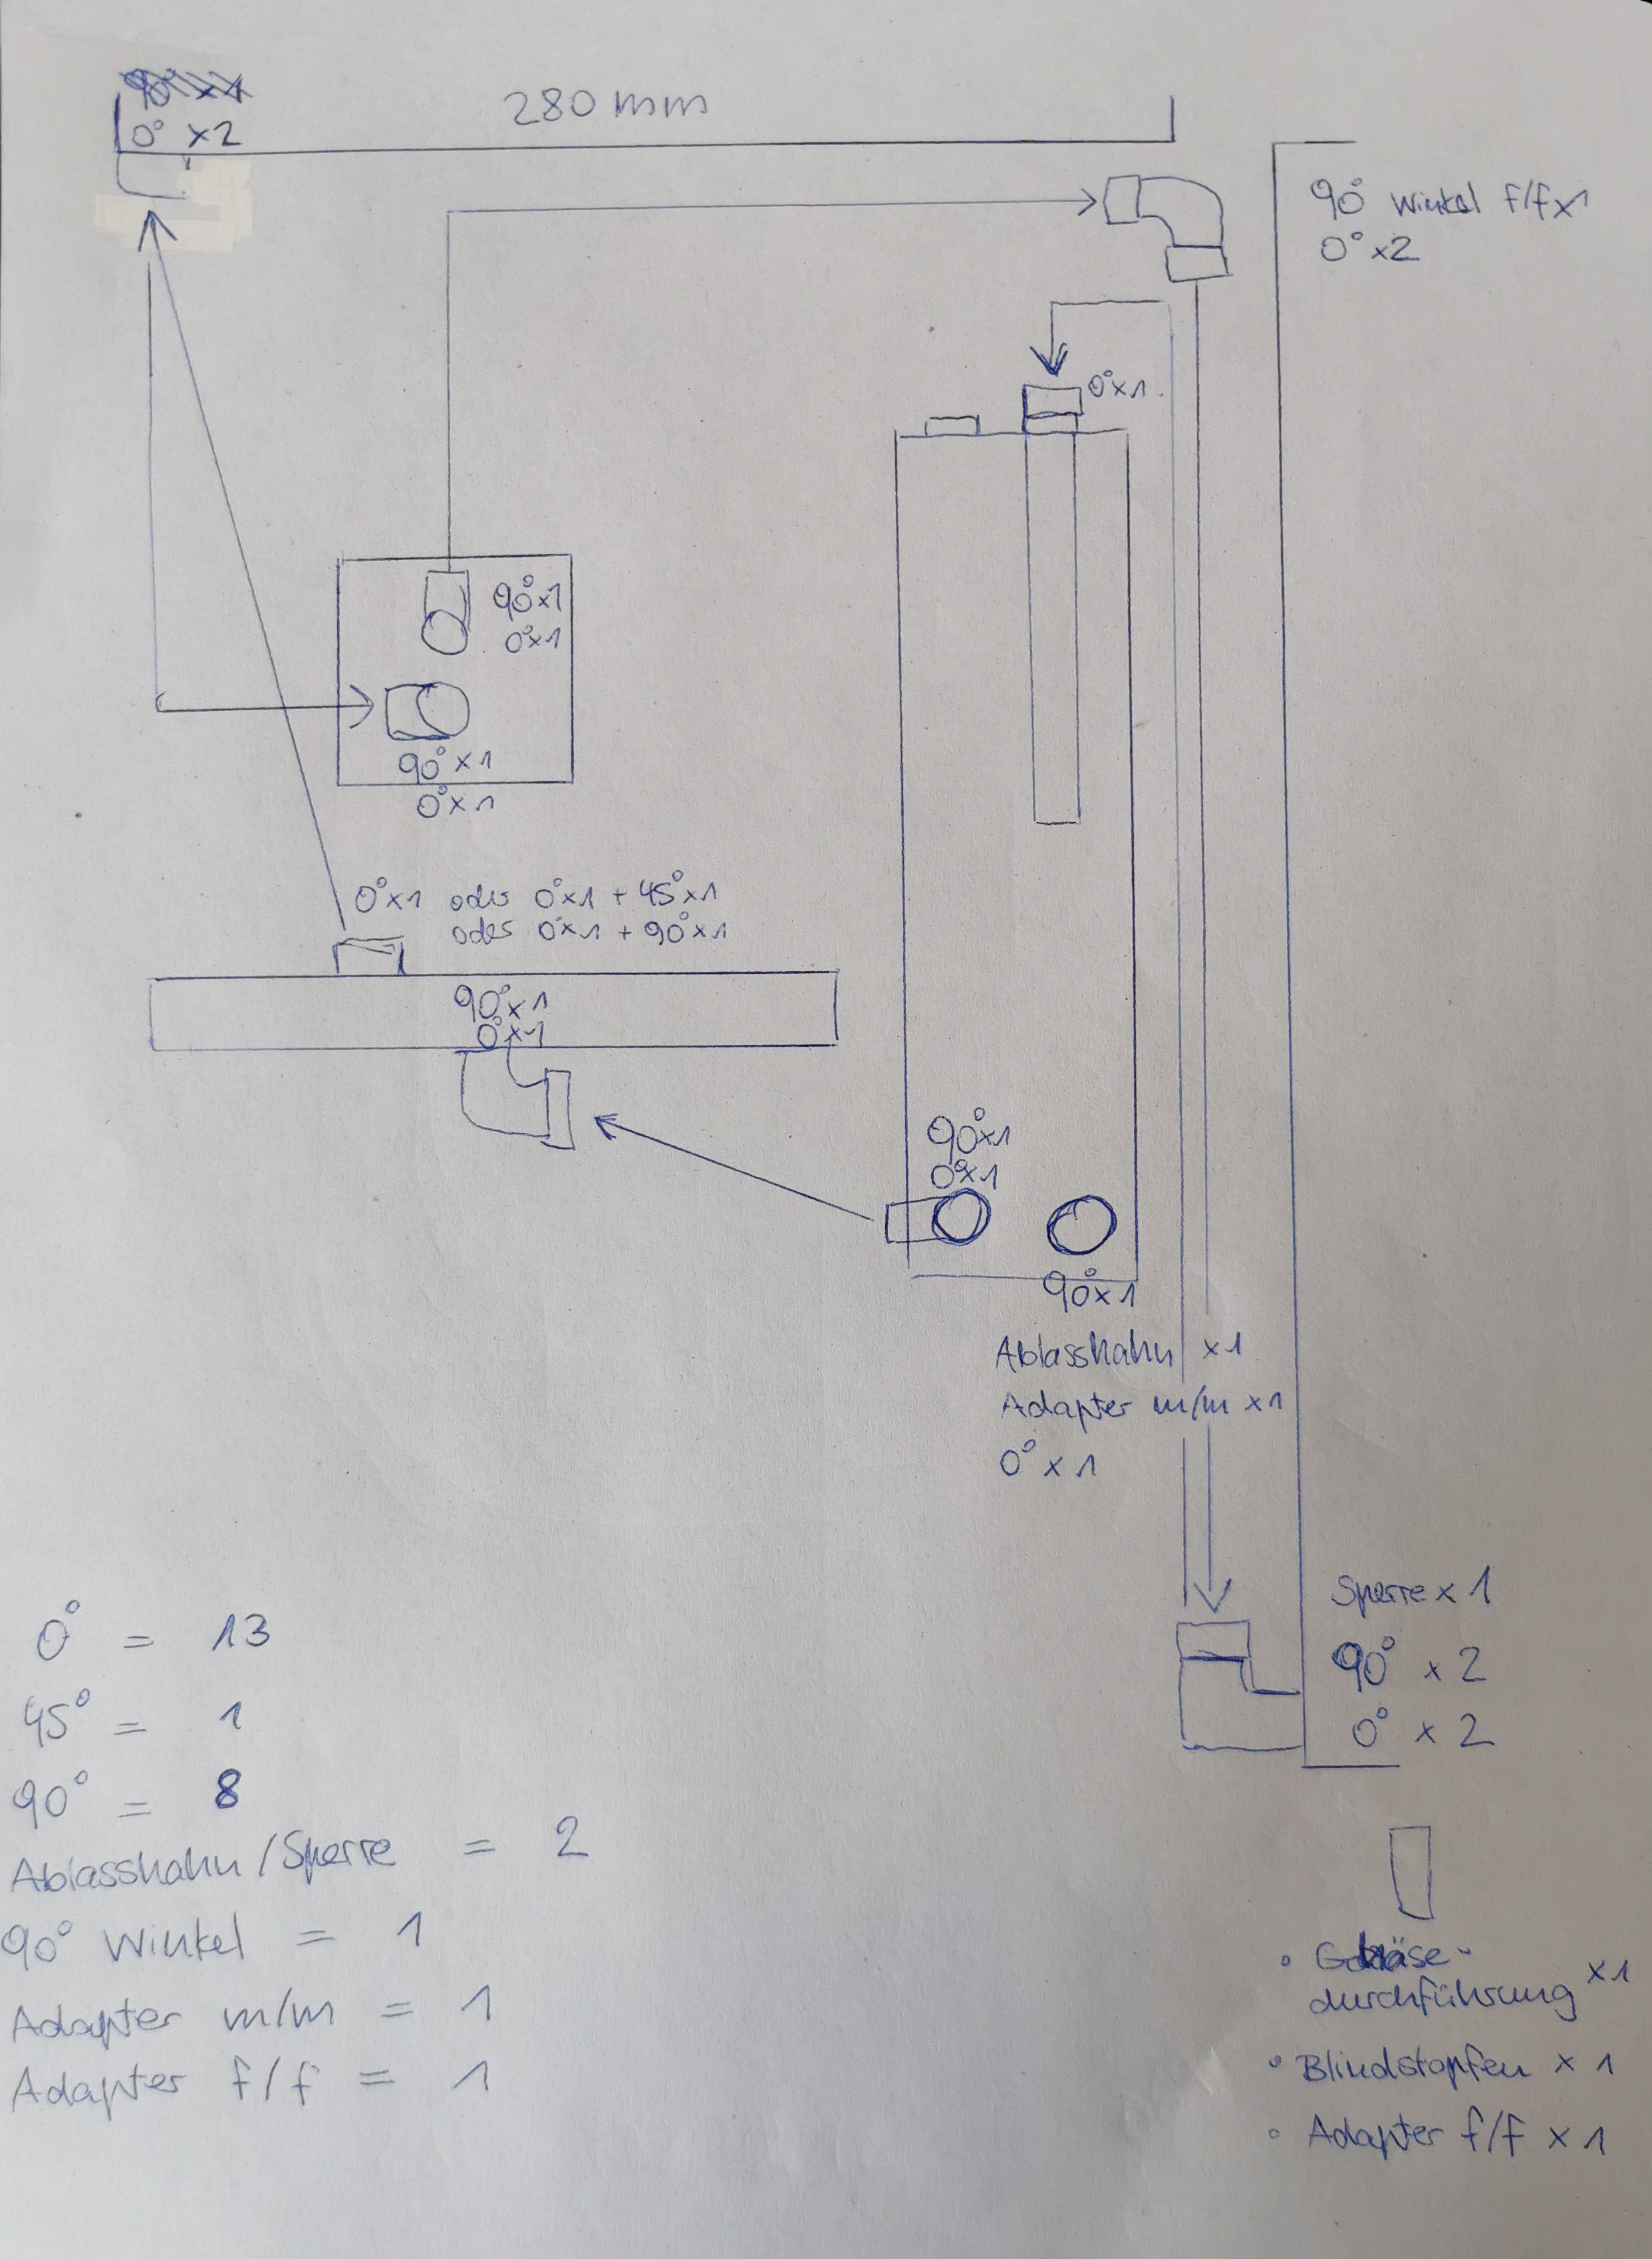 0° x2
280 mm
90° Winkel f/f x1
0° x2
0° x1
90° x1
0° x1
90° x1
0° x1
0° x1 oder 0° x1 + 45° x1
oder 0° x1 + 90° x1
90° x1
0° x1
90° x1
0° x1
90° x1
Ablasshahn x1
Adapter m/m x1
0° x1
Sperre x 1
90° x 2
0° x 2
0° = 13
45° = 1
90° = 8
Ablasshahn/Sperre = 2
90° Winkel = 1
Adapter m/m = 1
Adapter f/f = 1
durchführung x1
Blindstopfen x 1
Adapter f/f x 1